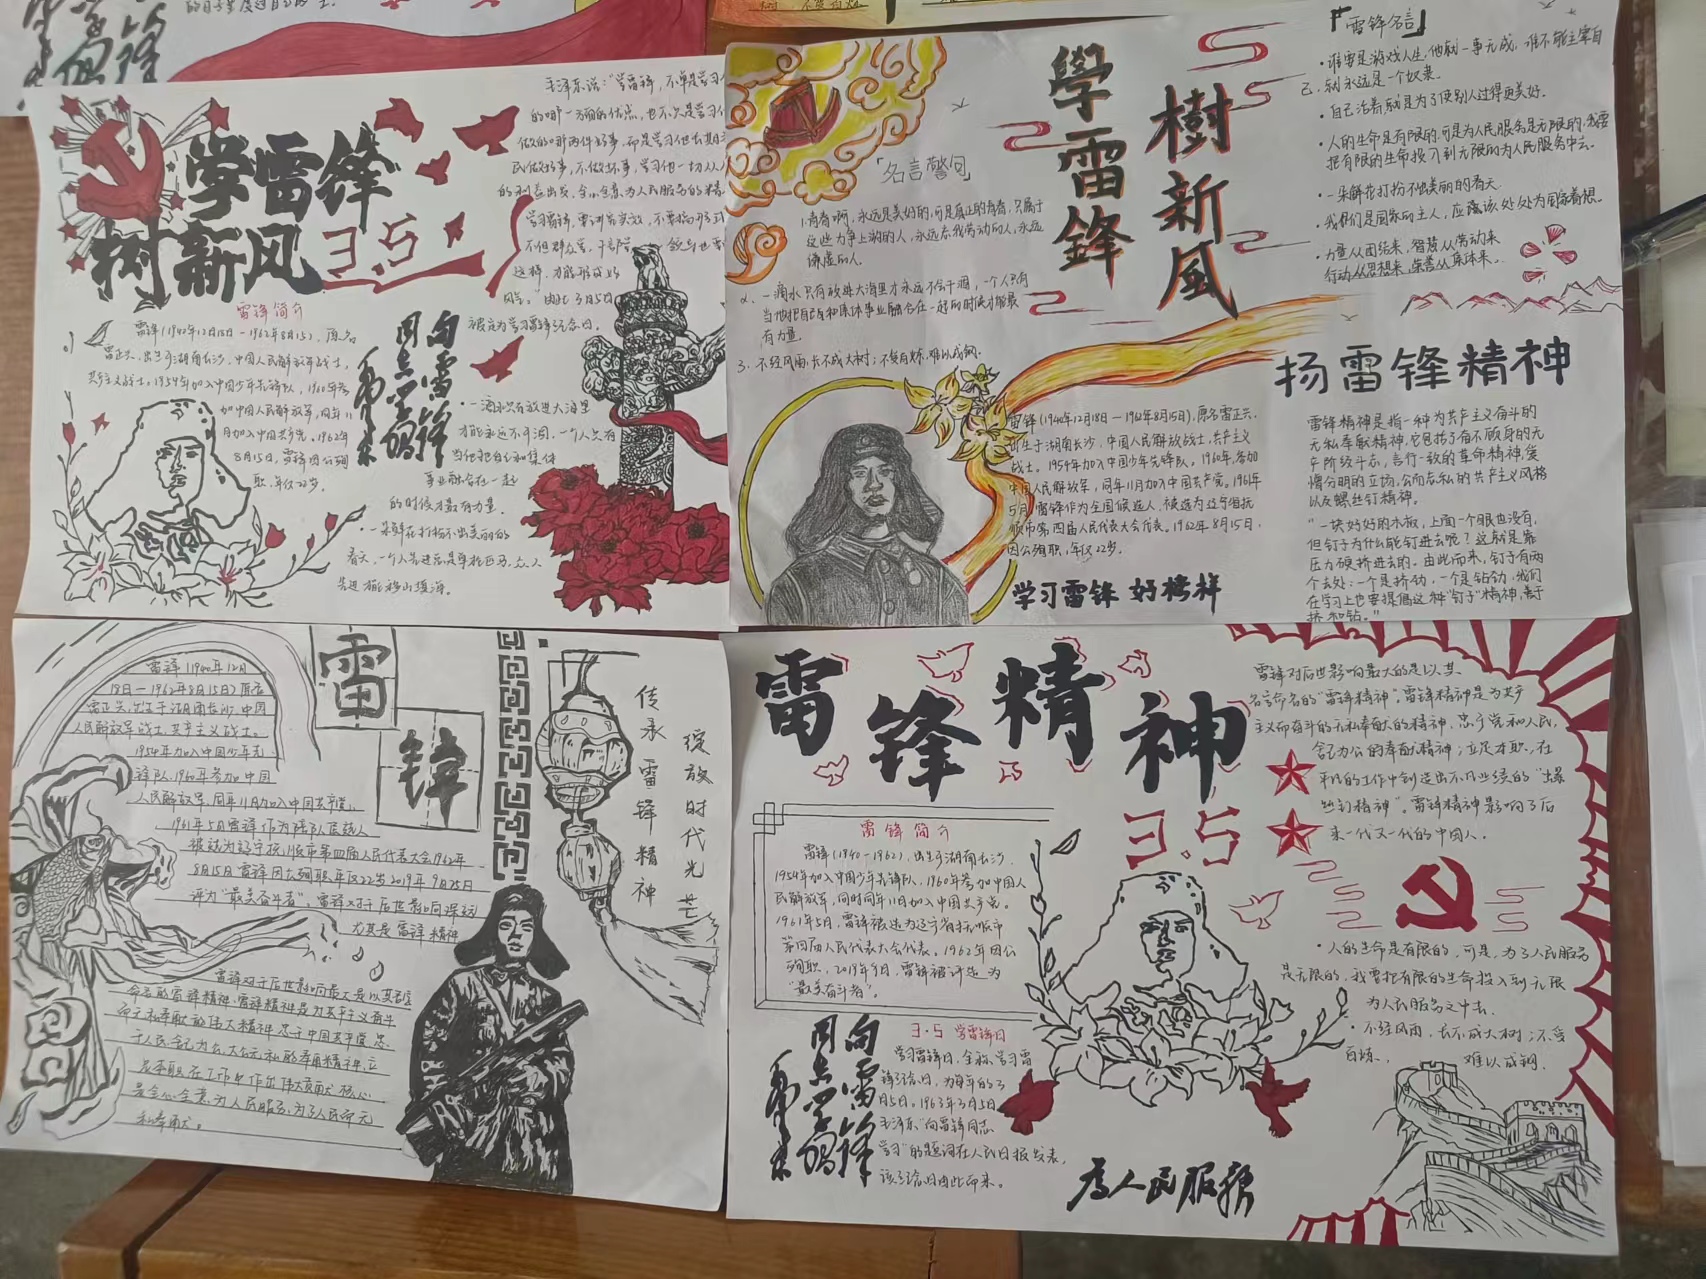 学雷锋
树新风 3.5
毛泽东说:"学雷锋,不单是学习
的哪一方面的优点,也不只是学习他
做的哪两件好事,而是学习他长期
民做好事,不做坏事,学习他一切从人
的利益出发,全心全意为人民服务的精
学习雷锋,要讲究实效,不要搞形式
这样,才能形成好
风气。 由此3月5日
被定为学习雷锋纪念日。
雷锋简介
雷锋(1940年12月18日-1962年8月15),原名
雷正兴,出生于湖南长沙,中国人民解放军战士,
共产主义战士。1954年加入中国少年先锋队,1960年参
加中国人民解放军,同年11
月加入中国共产党。1962年
8月15日,雷锋因公殉
职,年仅22岁。
向雷锋
同志学习
毛泽东
·一滴水只有放进大海里
才能永远不干涸,一个人只有
当他把自己和集体
事业融合在一起
的时候才最有力量。
·一朵鲜花打扮不出美丽的
春天,一个人先进总是单枪匹马,众人
先进才能移山填海。
學雷鋒
樹新風
「名言警句
1.青春啊,永远是美好的,可是真正的青春,只属于
这些力争上游的人,永远忘我劳动的人,永远
谦虚的人。
2、一滴水只有放进大海里才永远不会干涸,一个人只有
当他把自己和集体事业融合在一起的时候才能最
有力量
3、不经风雨,长不成大树;不受百炼,难以成钢。
『雷锋名言』
·谁要是游戏人生,他就一事无成,谁不能主宰自
己,就永远是一个奴隶。
·自己活着,就是为了使别人过得更美好。
·人的生命是有限的,可是为人民服务是无限的,我要
把有限的生命投入到无限的为人民服务中去。
·一朵鲜花打扮不出美丽的春天
·我们是国家的主人,应该处处为国家着想。
·力量从团结来,智慧从劳动来
行动从思想来,荣誉从集体来。
扬雷锋精神
雷锋(1940年12月18日—1962年8月15日),原名雷正兴,
出生于湖南长沙,中国人民解放战士,共产主义
战士。1954年加入中国少年先锋队。1960年,参加
中国人民解放军,同年11月加入中国共产党。1961年
5月,雷锋作为全国候选人,被选为辽宁省抚
顺市第四届人民代表大会代表。1962年8月15日,
因公殉职,年仅22岁。
学习雷锋 好榜样
雷锋精神是指一种为共产主义奋斗的
无私奉献精神,它包括了奋不顾身的无
产阶级斗志,言行一致的革命精神,爱
憎分明的立场,公而忘私的共产主义风格
以及螺丝钉精神。
"一块好好的木板,上面一个眼也没有,
但钉子为什么能钉进去呢?这就是靠
压力硬挤进去的。由此而来,钉子有两
个去处:一个是挤劲,一个是钻劲,我们
在学习上也要提倡这种"钉子"精神,善于
挤和钻。"
雷锋(1940年12月
18日—1962年8月15日)原名
雷正兴,出生于湖南长沙,中国
人民解放军战士,共产主义战士。
1954年加入中国少年先
锋队,1960年参加中国
人民解放军,同年11月加入中国共产党。
8月15日雷锋因公殉职年仅22岁2019年9月25日
评为"最美奋斗者"。雷锋对于后世影响深远
尤其是雷锋精神
雷锋
传承雷锋精神
绽放时代光芒
雷锋精神
3.5
雷锋简介
雷锋(1940-1962),出生于湖南长沙,
1954年加入中国少年先锋队,1960年参加中国人
民解放军,同时同年11月加入中国共产党。
1961年5月,雷锋被选为辽宁省抚顺市
第四届人民代表大会代表。1962年因公
殉职,2019年9月,雷锋被评选为
"最美奋斗者"。
向雷锋
同志学习
毛泽东
3·5 学雷锋日
学习雷锋日,全称学习雷
锋纪念日,为每年的3
月5日。1963年3月5日
毛泽东"向雷锋同志
学习"的题词在人民日报发表,
该纪念日由此而来。
为人民服務
雷锋对后世影响最大的是以其
名言命名的"雷锋精神"。雷锋精神是为共产
主义而奋斗的无私奉献的精神,忠于党和人民,
舍己为公的奉献精神;立足本职,在
平凡的工作中创造出不凡业绩的"螺
丝钉精神"。雷锋精神影响了后
来一代又一代的中国人。
·人的生命是有限的,可是,为了人民服务
是无限的,我要把有限的生命投入到无限
为人民服务之中去。
·不经风雨,长不成大树;不受
百炼, 难以成钢。